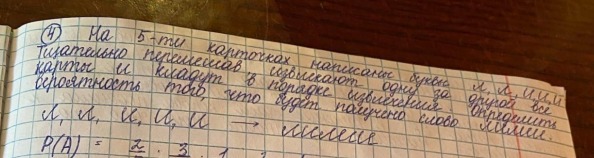 ④ На 5-ти карточках написаны буквы Л, Л, И, И, И
Тщательно перемешав, извлекают одну за другой все
карты и кладут в порядке извлечения. Определить
вероятность того, что будет получено слово лилии.
Л, Л, И, И, И → лилии
P(A) = 2 · 3 · 1